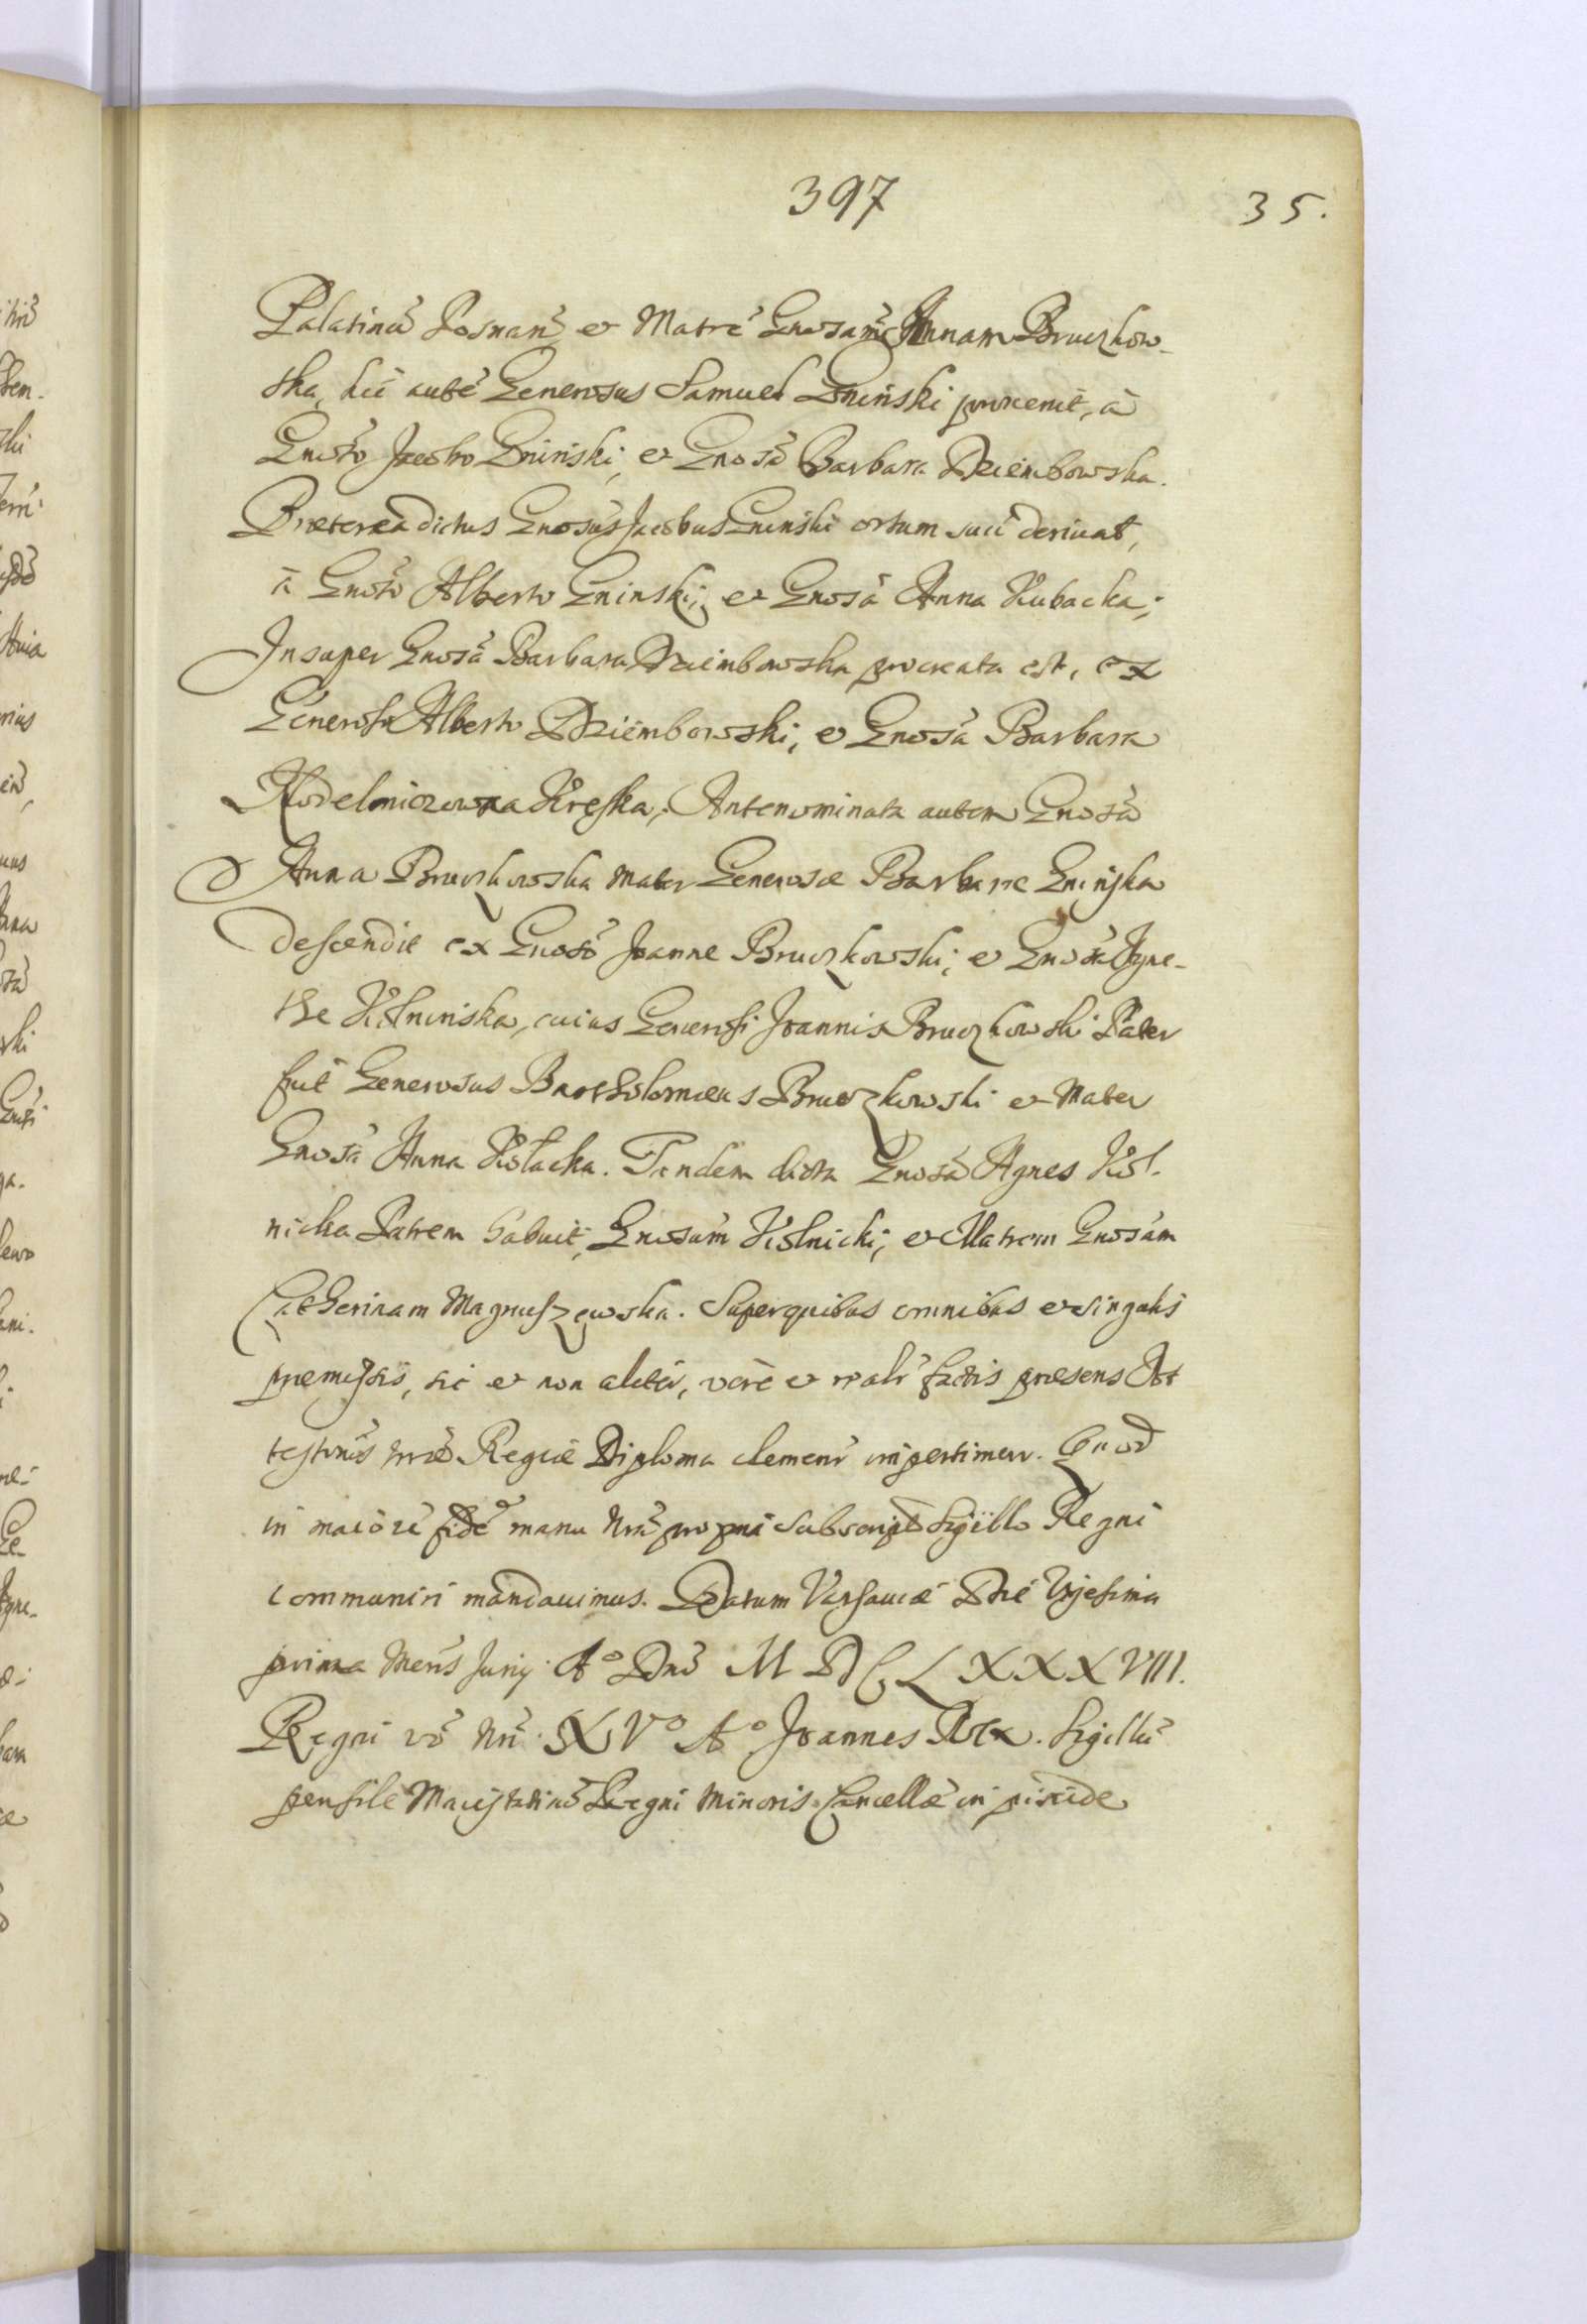 397
35.
Palatinū Posnanˇ et Matrē Gnosamˇ Annam Bruczkow-
ska, hic autē Generosus Samuel Gninski provenit, à
Gnosˇo Jacobo Gninski, et Gnosâ Barbara Dziembowska.
Prætereà dictus Gnosus Jacobus Gninski ortum suū derivat,
à Gnosˇo Alberto Gninski, et Gnosâ Anna Kubacka;
Insuper Gnosâ Barbara Dziembowska procreata est, ex
Generoso Alberto Dziembowski, et Gnosâ Barbara
Kreska, Antenominata autem Gnosâ
Anna Bruczkowska mater Generosæ Barbaræ Gninska
descendit ex Gnosˇo Joanne Bruczkowski, et Gnosâ Agne-
the Kolninska, cuius Generosi Joannis Bruczkowski Pater
fuit Generosus Bartholomæus Bruczkowski et Mater
Gnosâ Anna Kołacka. Tandem dicta Gnosâ Agnes Kol-
nicka Patrem habuit, Gnosum Kolnicki, et Matrem Gnosam
Catherinam Magnuszewska. Super quibus omnibus et singulis
præmissis, sic et non aliter, verè et realrˇ factis præsens At
testonisˇ nrǣ Regiæ Diploma clementˇ impertimur. Quod
in maiorē fidē manu nrā propriâ subscriptˇ Sigillo Regni
communiri mandavimus. Datum Varsaviæ Die Vigesima
prima Mensˇ Junij A° Dnī M D C L X X X VIII.
Regni vō Nrī XV° A° Joannes Rex. Sigillū
pensile Maiestatisˇ Regni Minoris Cancellǣ in pixide